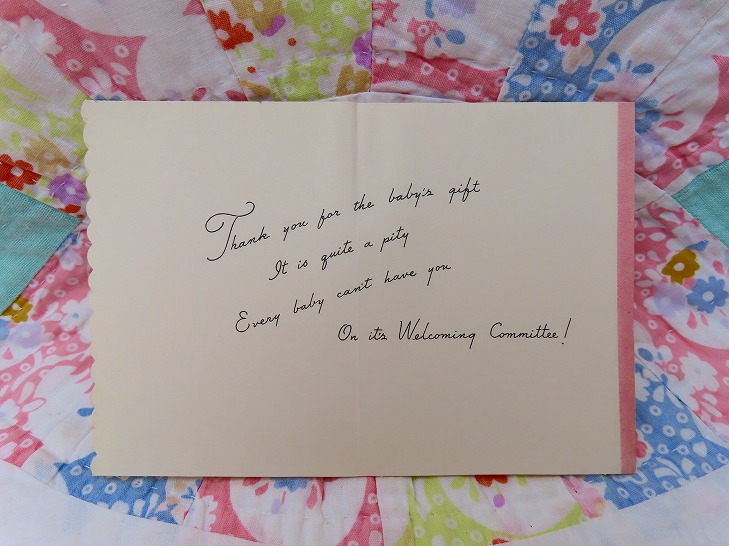 Thank you for the baby's gift
It is quite a pity
Every baby can't have you
On it's Welcoming Committee!